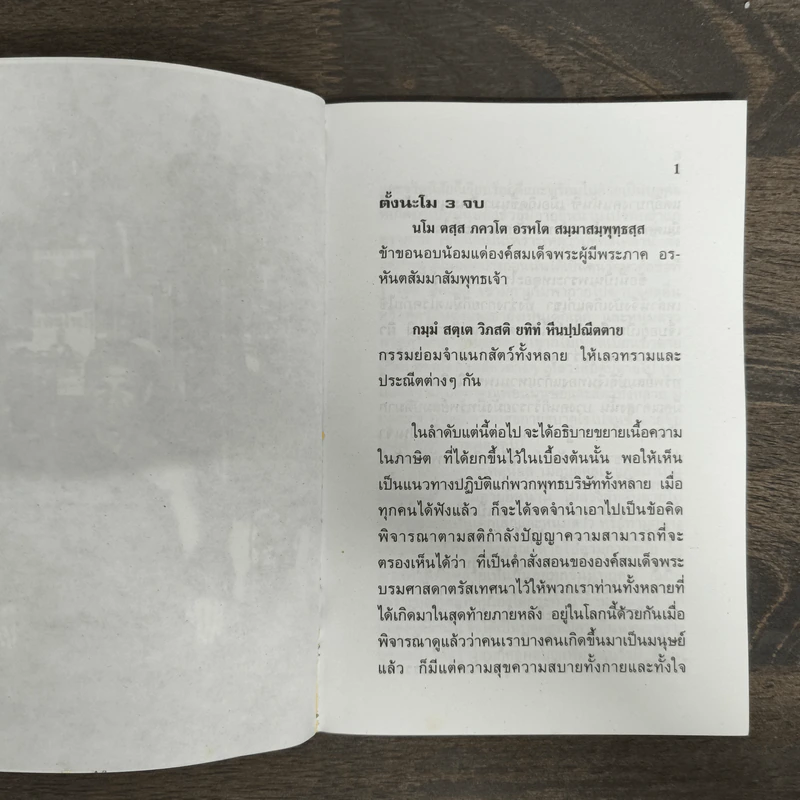 1
ตั้งนะโม 3 จบ
นโม ตสฺส ภควโต อรหโต สมฺมาสมฺพุทฺธสฺส
ข้าขอนอบน้อมแด่องค์สมเด็จพระผู้มีพระภาค อร-
หันตสัมมาสัมพุทธเจ้า
กมฺมํ สตฺเต วิภสติ ยทิทํ หีนปฺปณีตตาย
กรรมย่อมจำแนกสัตว์ทั้งหลาย ให้เลวทรามและ
ประณีตต่างๆ กัน
ในลำดับแต่นี้ต่อไป จะได้อธิบายขยายเนื้อความ
ในภาษิต ที่ได้ยกขึ้นไว้ในเบื้องต้นนั้น พอให้เห็น
เป็นแนวทางปฏิบัติแก่พวกพุทธบริษัททั้งหลาย เมื่อ
ทุกคนได้ฟังแล้ว ก็จะได้จดจำนำเอาไปเป็นข้อคิด
พิจารณาตามสติกำลังปัญญาความสามารถที่จะ
ตรองเห็นได้ว่า ที่เป็นคำสั่งสอนขององค์สมเด็จพระ
บรมศาสดาตรัสเทศนาไว้ให้พวกเราท่านทั้งหลายที่
ได้เกิดมาในสุดท้ายภายหลัง อยู่ในโลกนี้ด้วยกันเมื่อ
พิจารณาดูแล้วว่าคนเราบางคนเกิดขึ้นมาเป็นมนุษย์
แล้ว ก็มีแต่ความสุขความสบายทั้งกายและทั้งใจ